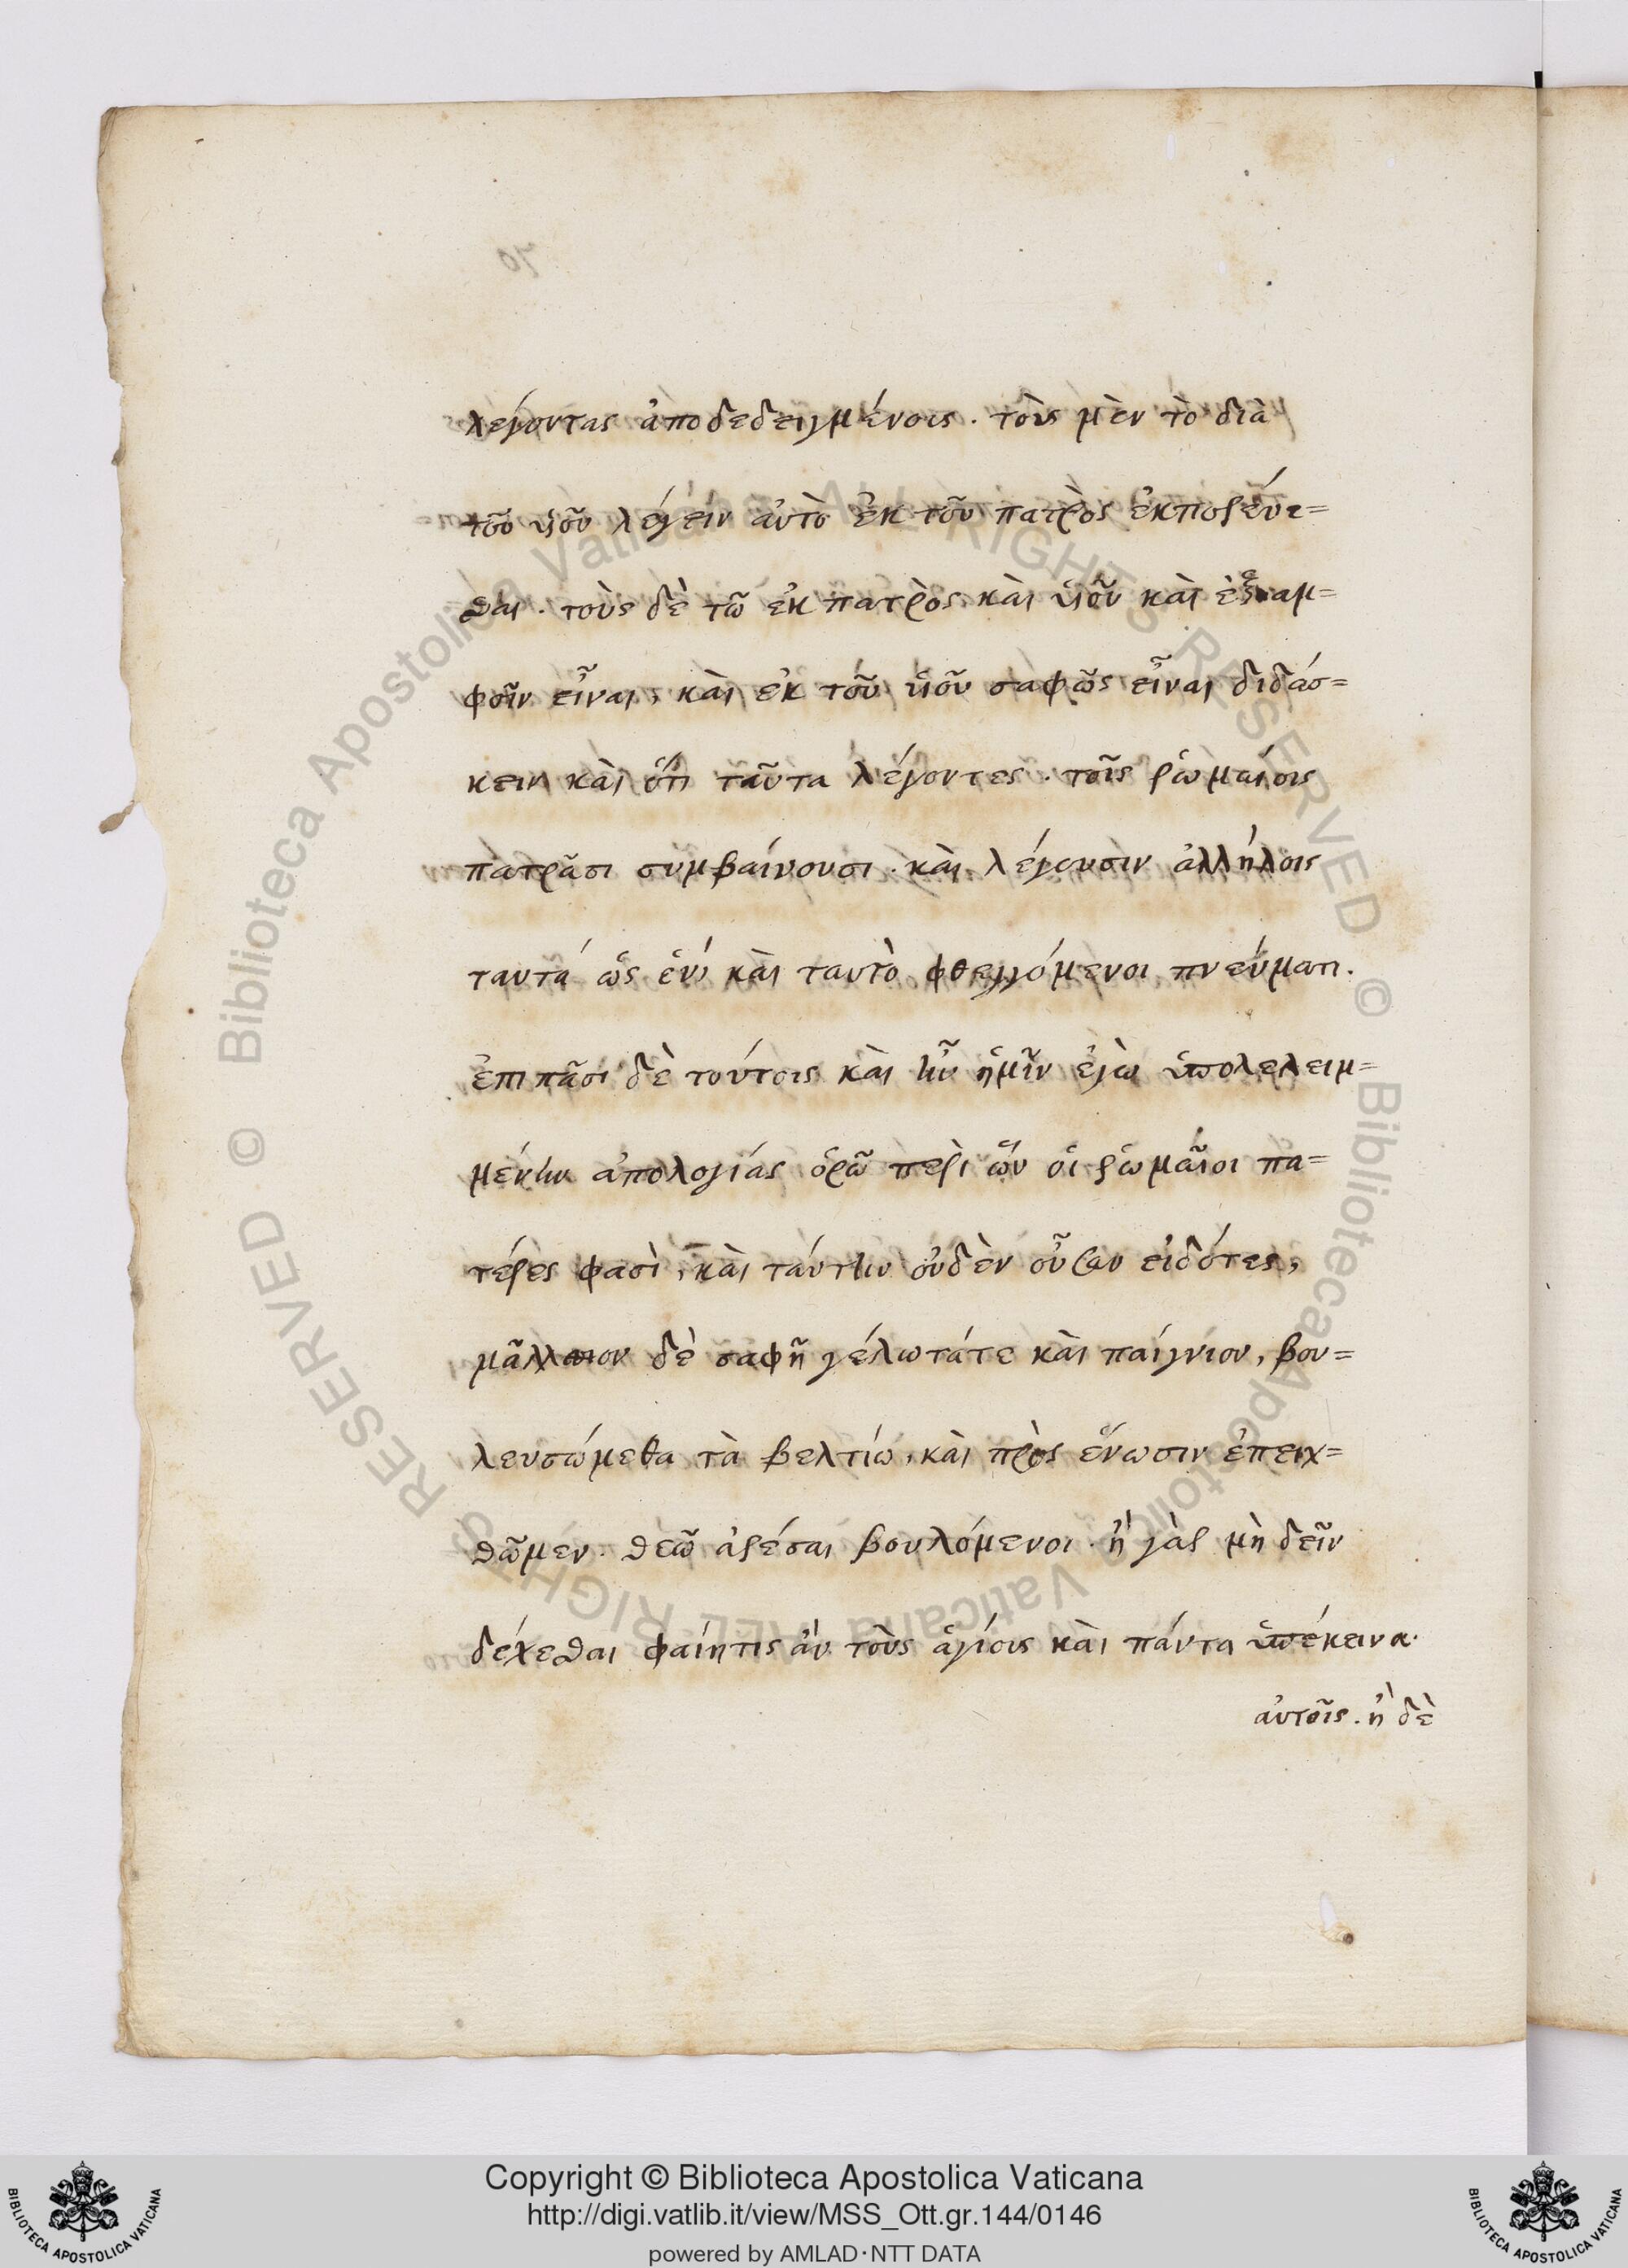 λέγοντας ἀποδεδειγμένοις. τοὺς μὲν τὸ διὰ
τοῦ υἱοῦ λέγειν αὐτὸ ἐκ τοῦ πατρὸς ἐκπορεύε=
σθαι. τοὺς δὲ τῶ ἐκ πατρὸς καὶ υἱοῦ καὶ ἐξ ἀμ=
φοῖν εἶναι, καὶ ἐκ τοῦ υἱοῦ σαφῶς εἶναι διδάσ=
κειν καὶ ὅτι ταῦτα λέγοντες. τοῖς ῥωμαίοις
πατρᾶσι συμβαίνουσι. καὶ λέγουσιν ἀλλήλοις
ταυτά ὡς ἑνὶ καὶ ταυτὸ φθεγγόμενοι πνεύματι.
ἐπι πᾶσι δὲ τούτοις καὶ ἣν ἡμῖν ἐγὼ ὑπολελειμ=
μένην ἀπολογίας ὁρῶ περὶ ὧν οἱ ῥωμαῖοι πα=
τέρες φασὶ, καὶ ταύτην οὐδὲν οὖσαν εἰδότες,
δὲ σαφῆ γέλωτάτε καὶ παίγνιον, βου=
λευσώμεθα τὰ βελτίω, καὶ πρὸς ἕνωσιν ἐπειχ=
θῶμεν. θεῶ ἀρέσαι βουλόμενοι. ἢ γὰρ μὴ δεῖν
δέχεσθαι φαίητις ἂν τοὺς ἁγίους καὶ πάντα ὑπέκεινα.
αὐτοῖς. ἢ δὲ
Copyright © Biblioteca Apostolica Vaticana
http://digi.vatlib.it/view/MSS_Ott.gr.144/0146
powered by AMLAD·NTT DATA